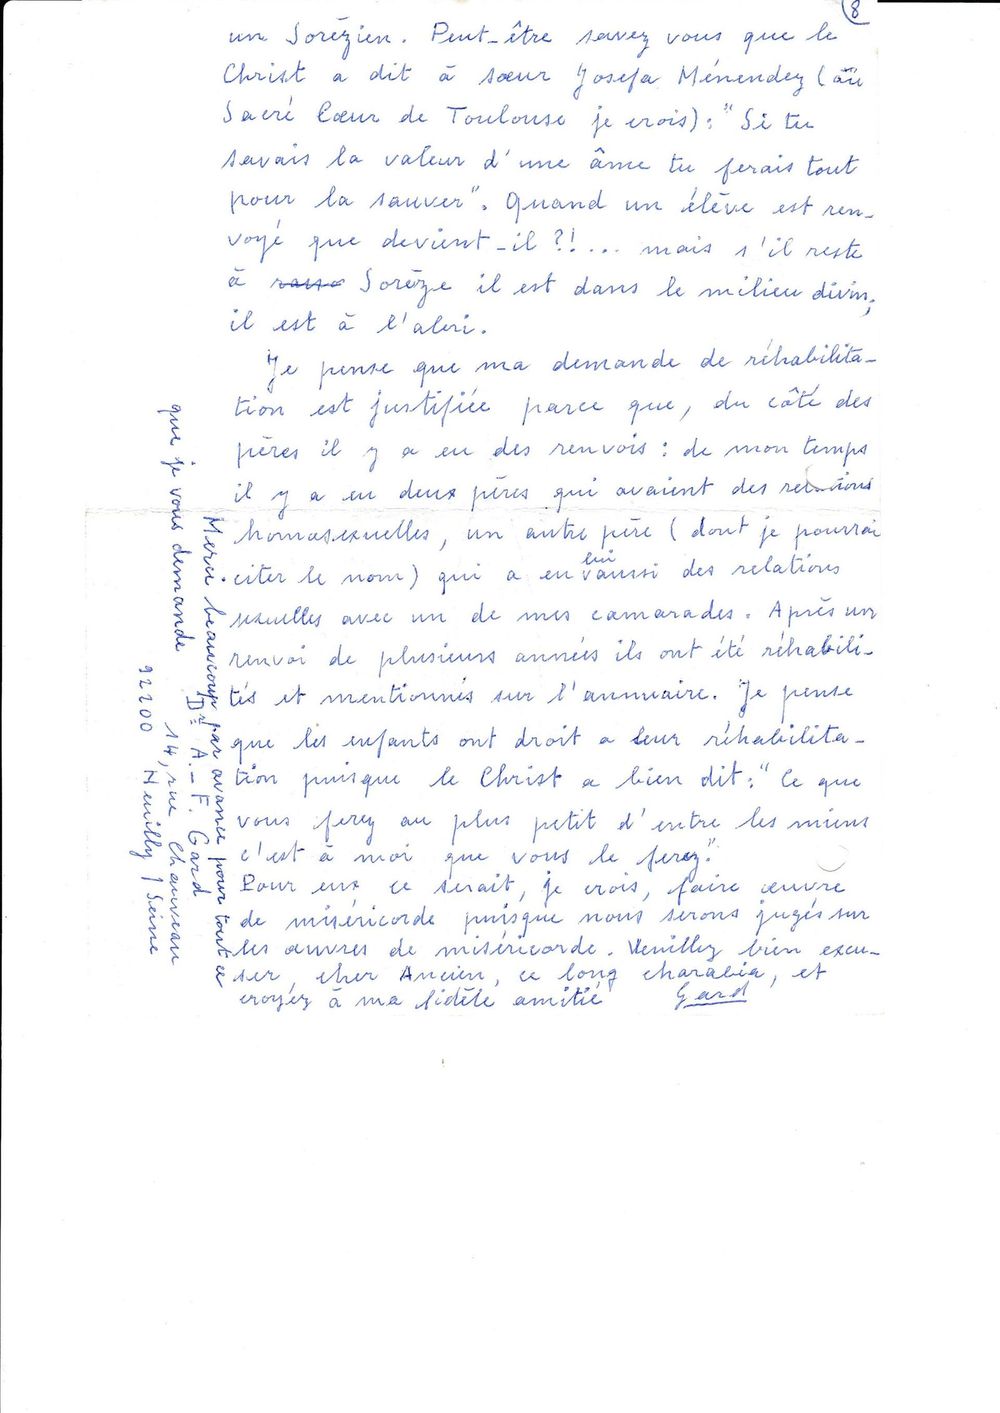 8
un Sorézien. Peut-être savez vous que le
Christ a dit à sœur Josefa Ménendez (au
Sacré Cœur de Toulouse je crois): "Si tu
savais la valeur d'une âme tu ferais tout
pour la sauver". Quand un élève est ren-
voyé que devient-il ?!... mais s'il reste
à Sorèze il est dans le milieu divin;
il est à l'abri.
Je pense que ma demande de réhabilita-
tion est justifiée parce que, du côté des
pères il y a eu des renvois : de mon temps
il y a eu deux pères qui avaient des relations
homosexuelles, un autre père (dont je pourrai
citer le nom) qui a eu lui aussi des relations
sexuelles avec un de mes camarades. Après un
renvoi de plusieurs années ils ont été réhabili-
tés et mentionnés sur l'annuaire. Je pense
que les enfants ont droit a leur réhabilita-
tion puisque le Christ a bien dit: "Ce que
vous ferez au plus petit d'entre les miens
c'est à moi que vous le ferez."
Pour eux ce serait, je crois, faire œuvre
de miséricorde puisque nous serons jugés sur
les œuvres de miséricorde. Veuillez bien excu-
ser, cher Ancien, ce long charabia, et
croyez à ma fidèle amitié Gard
Merci beaucoup par avance pour tout ce
que je vous demande
Dr A.-F. Gard
14, rue Chauveau
92200 Neuilly / Seine